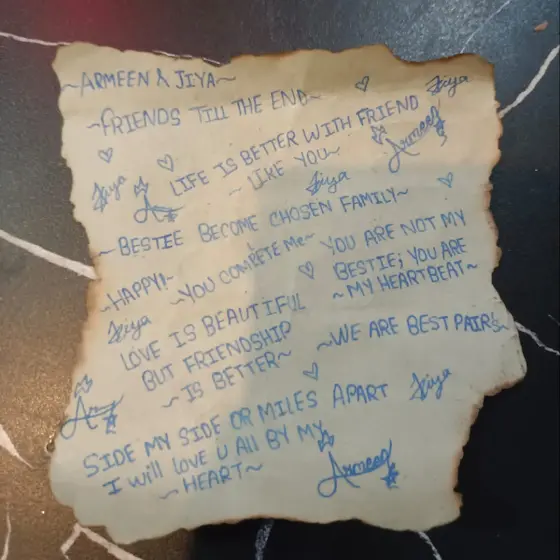 ~ARMEEN & JIYA~
~FRIENDS TILL THE END~
Jiya
LIFE IS BETTER WITH FRIEND
~ LIKE YOU~
Armeen
Jiya
Jiya
~BESTEE BECOME CHOSEN FAMILY~
~HAPPY!~
~YOU COMPLETE Me~
YOU ARE NOT MY
BESTIE; YOU ARE
~MY HEARTBEAT~
Jiya
LOVE IS BEAUTIFUL
BUT FRIENDSHIP
~ IS BETTER~
~WE ARE BEST PAIR'S~
Jiya
SIDE MY SIDE OR MILES APART
I will love U All BY MY
~HEART~
Armeen